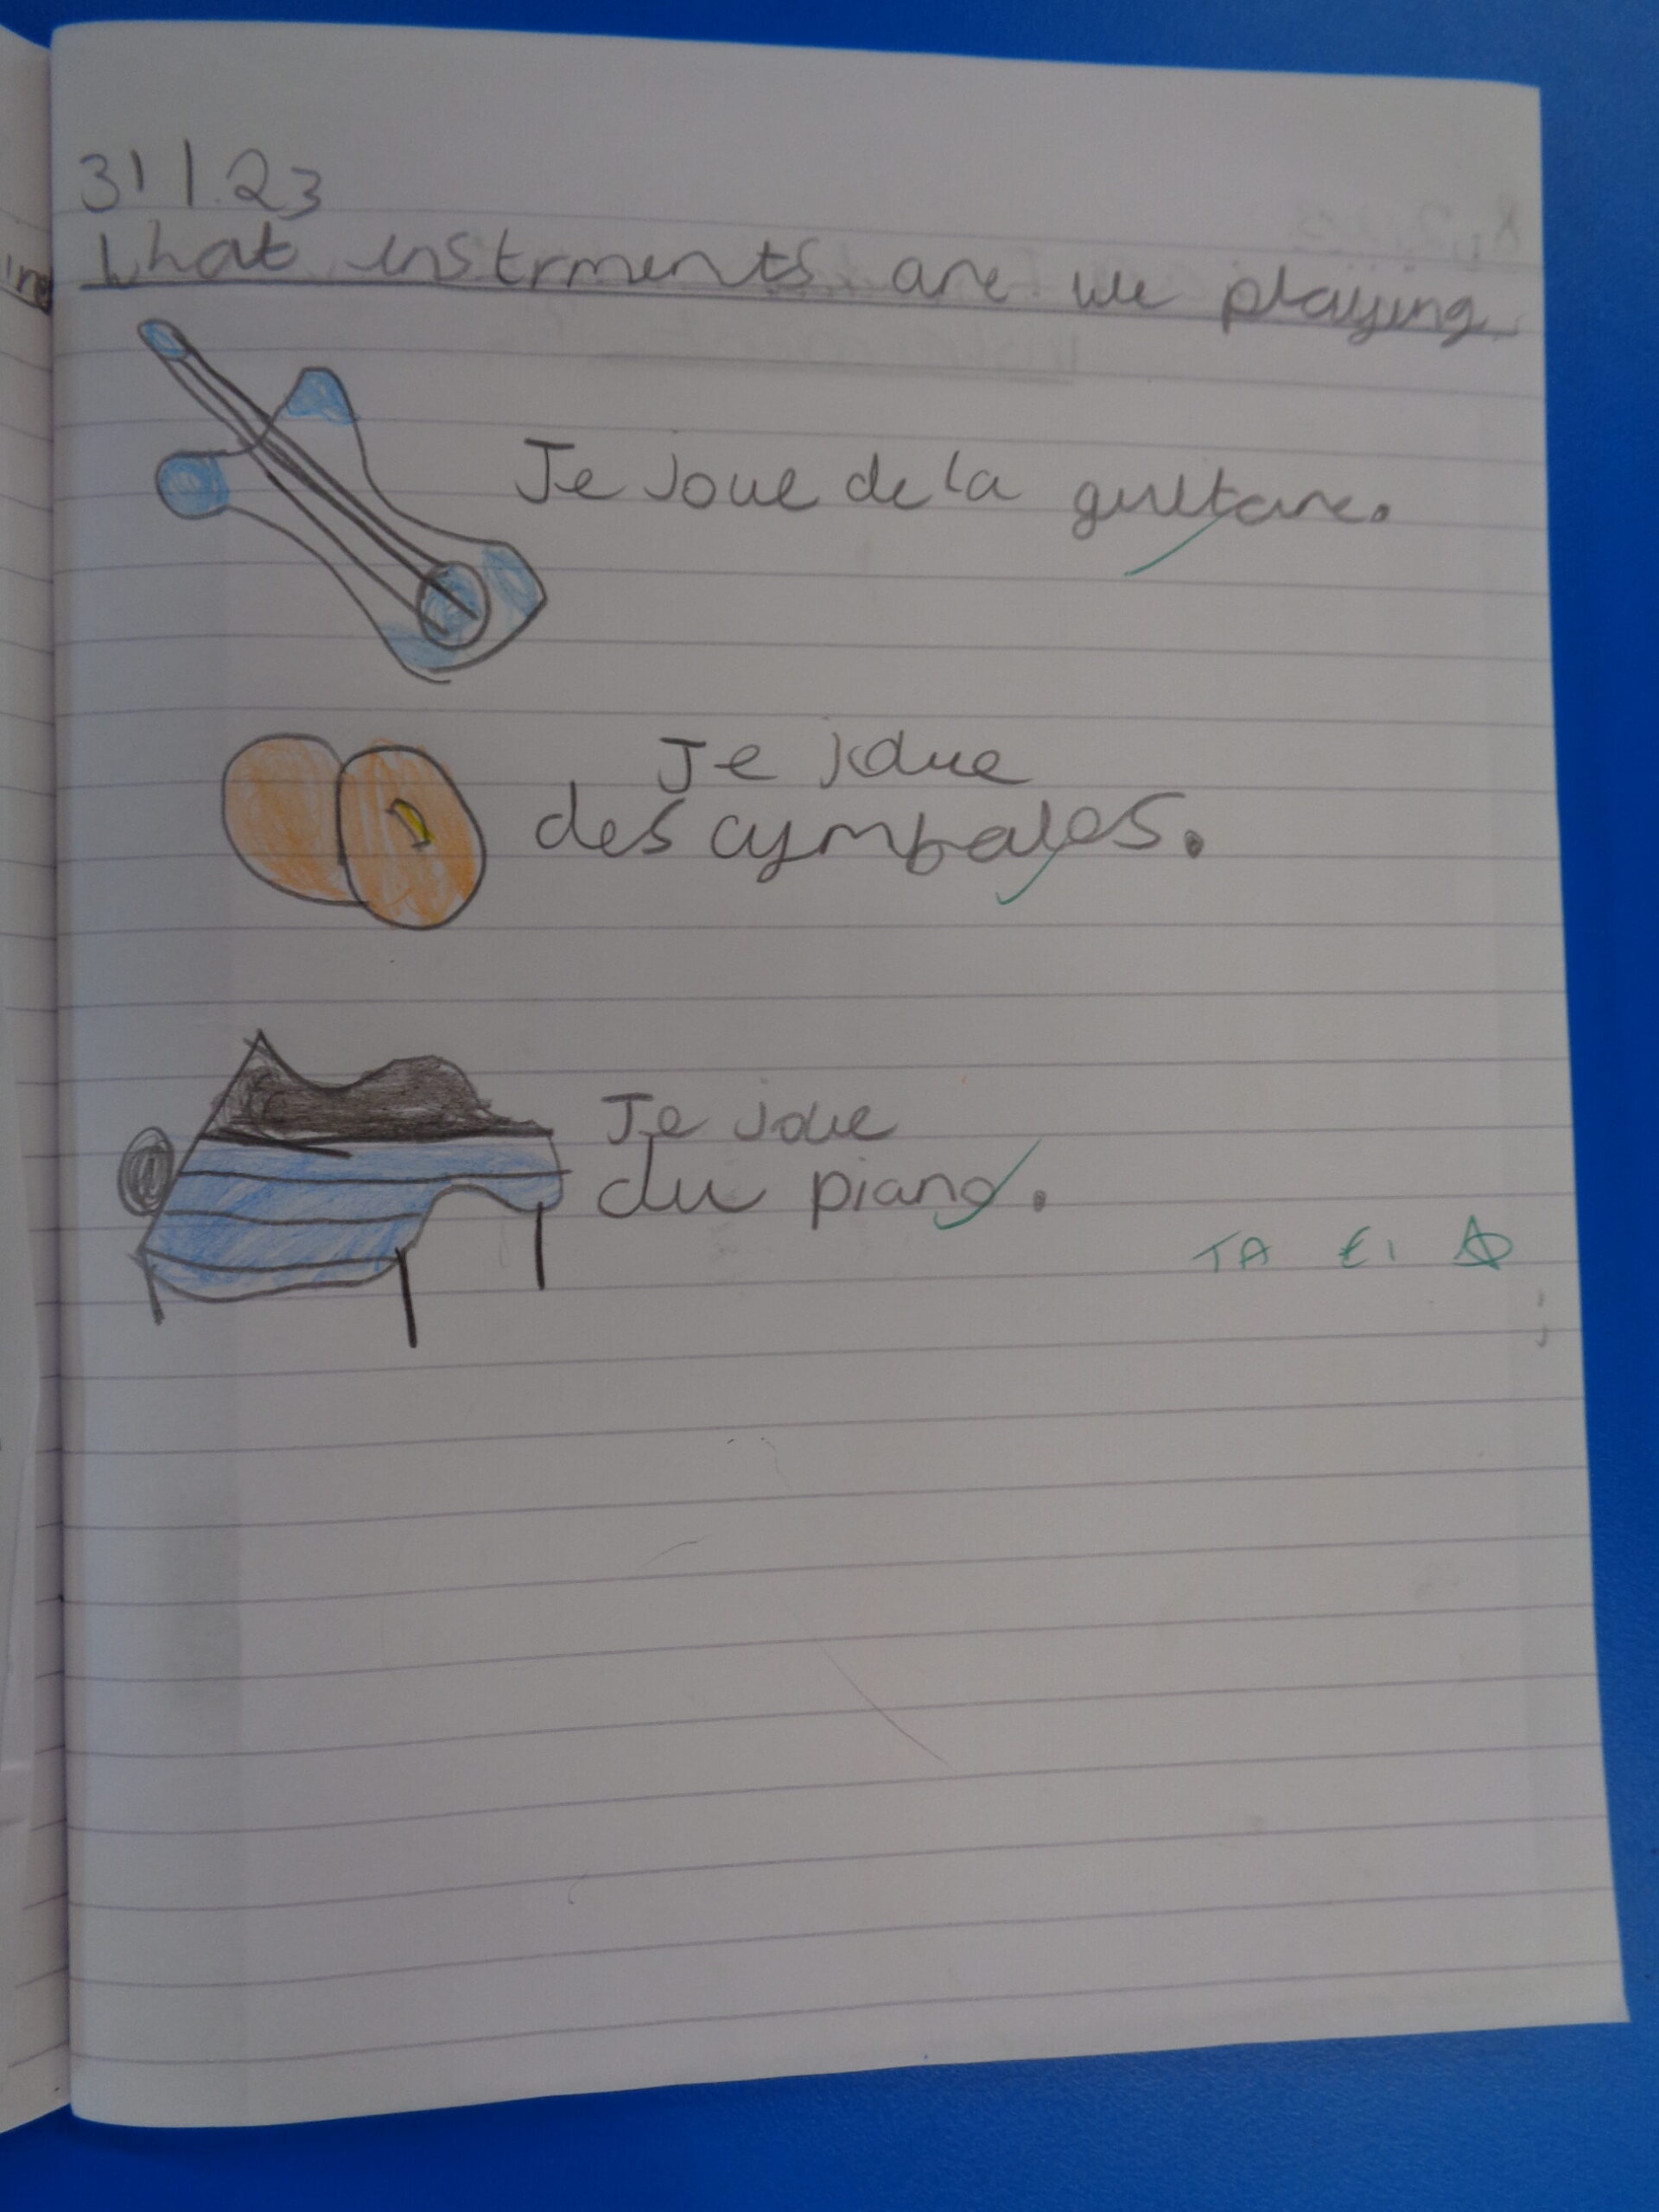 31.1.23
What instrments are we playing
Je joue de la guitare.
Je joue
des cymbales.
Je joue
du piano.
TA EI